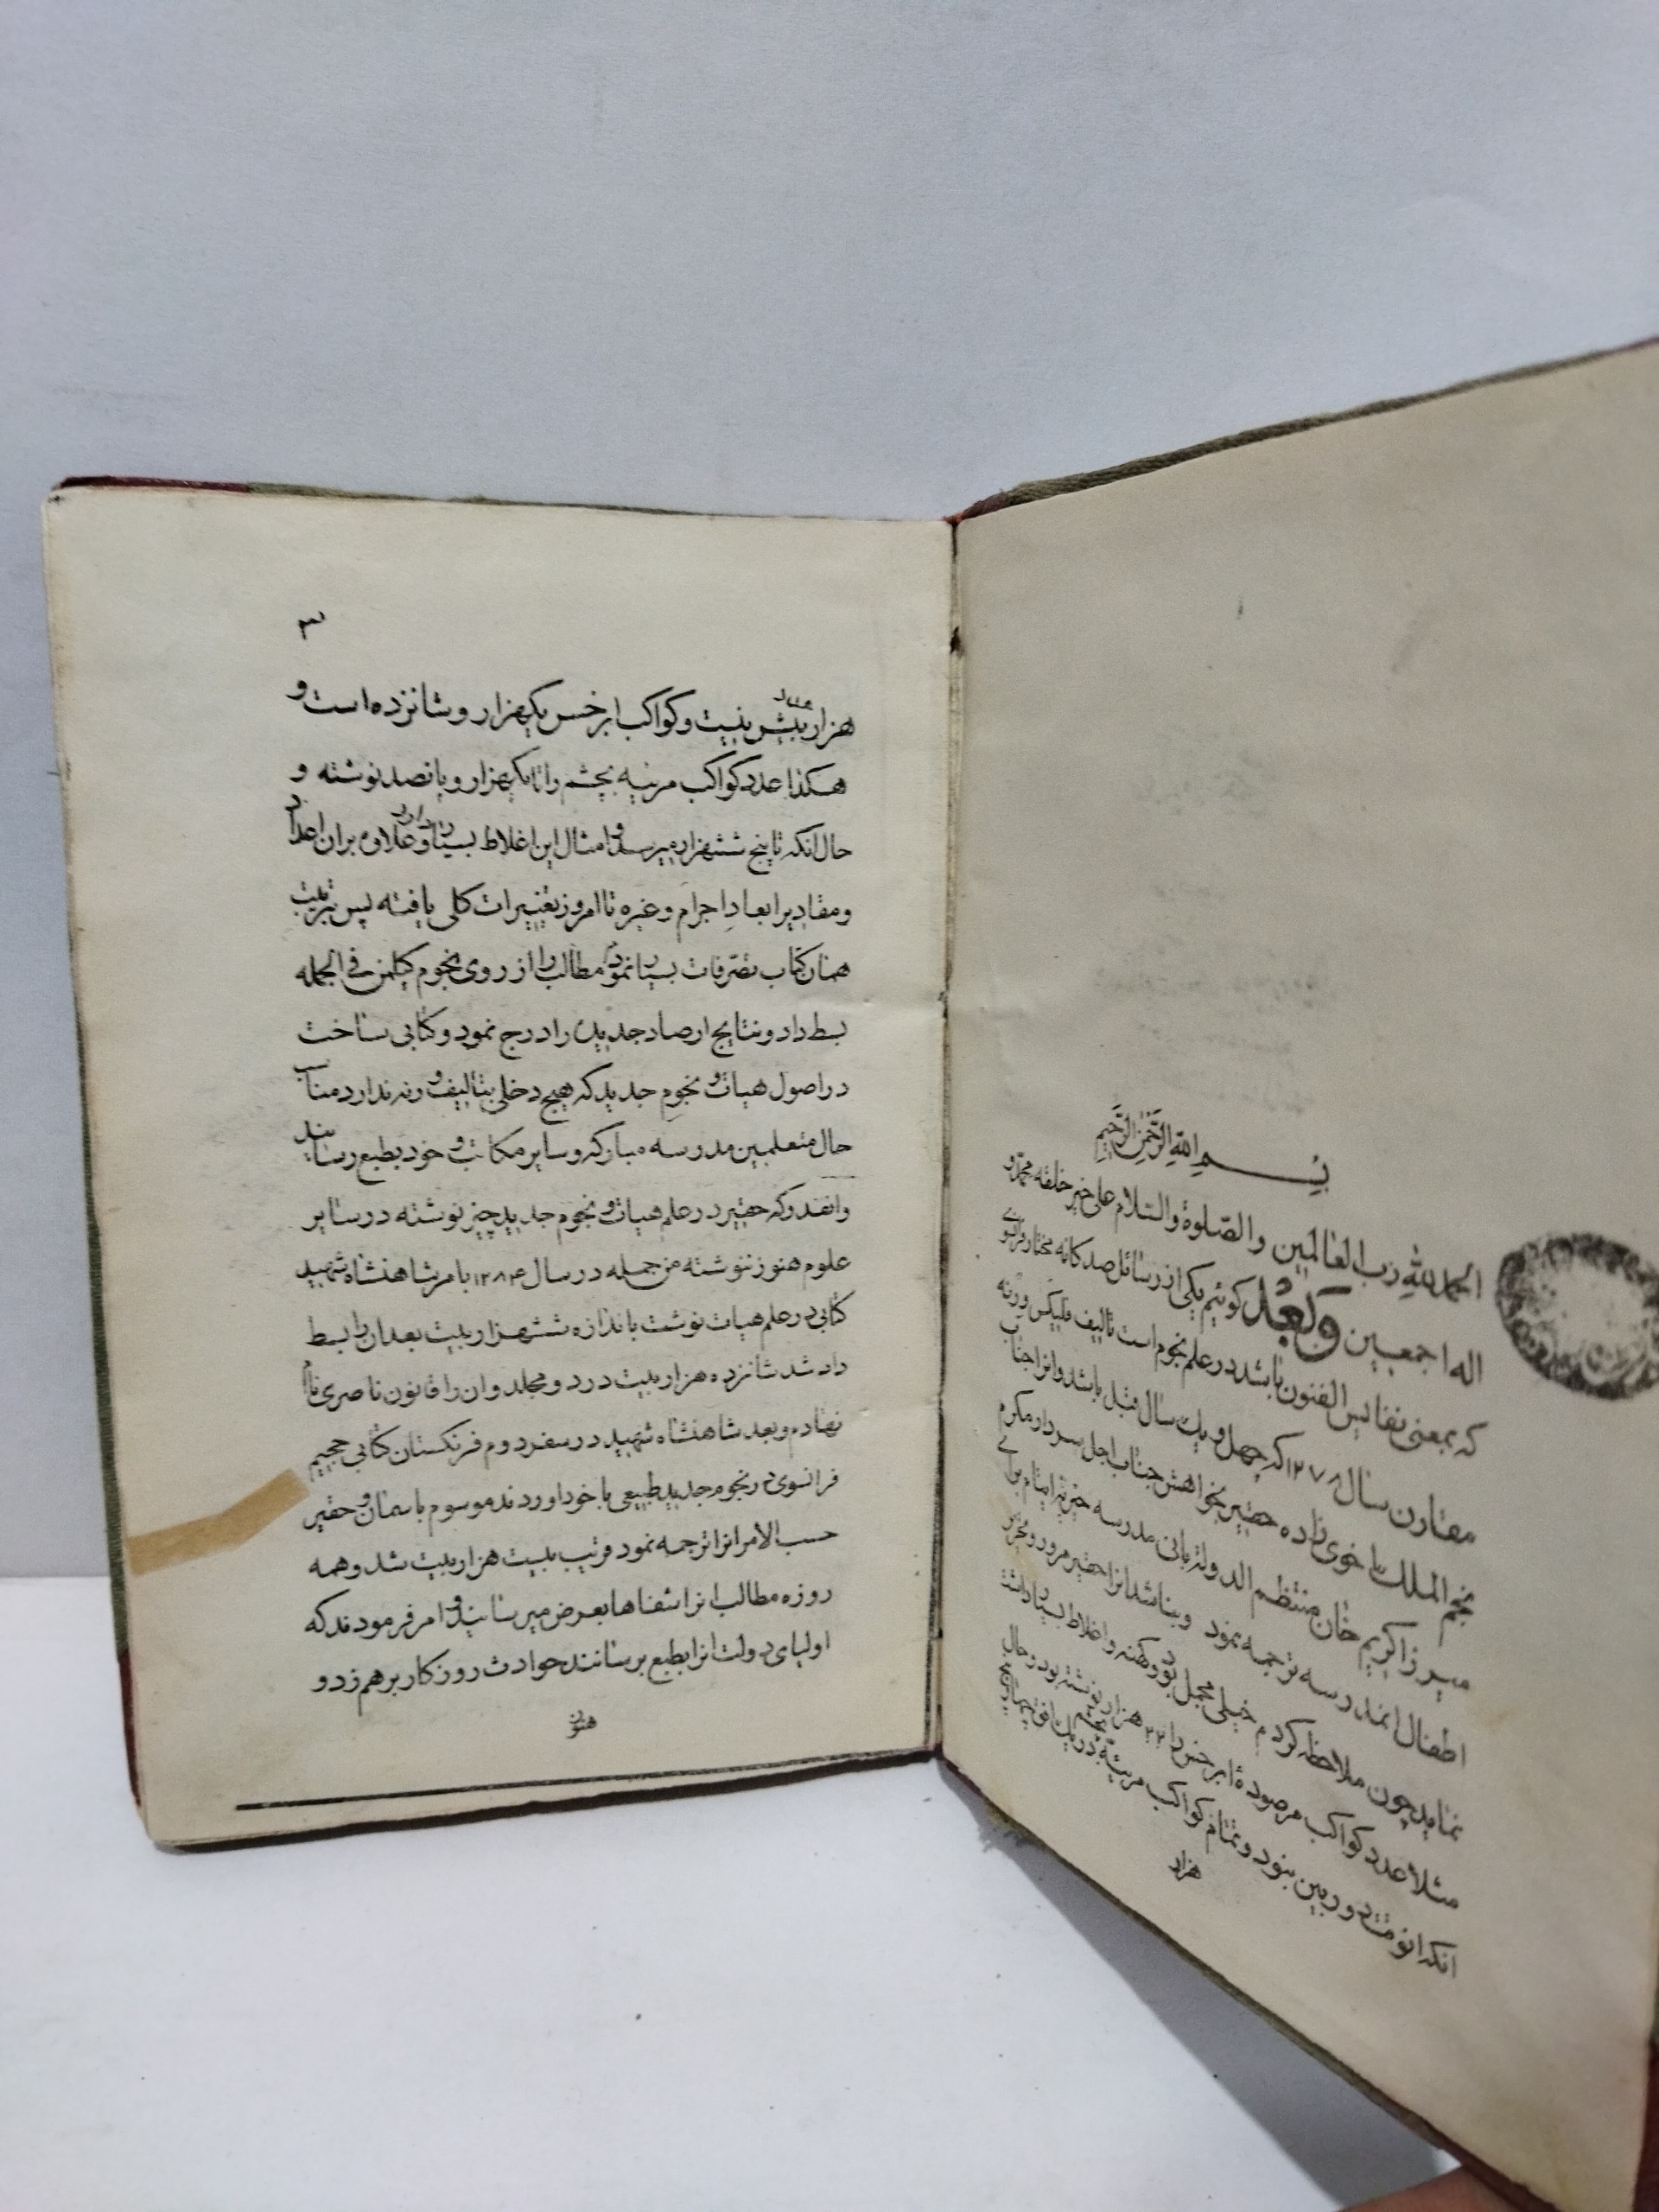 بسم الله الرحمن الرحیم
الحمد لله رب العالمین والصلوة والسلام علی خیر خلقه محمد و
اله اجمعین وبعد کوئیم یکی از رسائل صد کانه مختار فرانسوی
که بمعنی نفایس الفنون باشد در علم نجوم است تالیف فلیکس ورنه
مقارن سال ۱۲۷۸ که چهل و یک سال قبل باشد و انرا جناب
نجم الملک با خوی زاده حقیر بخواهش جناب اجل سردار مکرم
میرزا کریم خان منتظم الدوله بانی مدرسه خیریه ایتام برای
اطفال انمدرسه ترجمه نمود و بنا شد انرا حقیر مرور و تحریر
نماید چون ملاحظه کردم خیلی مجمل بود و کهنه و اغلاط بسیار داشت
مثلا عدد کواکب مرصوده ابرخس را ۲۲ هزار نوشته بود و حال
انکه انوقت دوربین نبود و تمام کواکب مرئیه بچشم در یک افق
هزار
۳
هزار بیش نیست و کواکب ابرخس یکهزار و شانزده است و
هکذا عدد کواکب مرئیه بچشم را تا یکهزار و پانصد نوشته و
حال انکه تا پنج ششهزار میرسد و امثال این اغلاط بسیار دارد و علاوه بران اعداد
و مقادیر ابعاد اجرام و غیره تا امروز تغییرات کلی یافته پس بترتیب
همان کتاب تصرفات بسیار نموده مطالب را از روی نجوم کیلمن فی الجمله
بسط داد و نتایج ارصاد جدیده را درج نمود و کتابی ساخت
در اصول هیات و نجوم جدید که هیچ دخلی بتألیف ورنه ندارد و مناسب
حال متعلمین مدرسه مبارکه و سایر مکاتب و خود بطبع رسانید
وانقدر که حقیر در علم هیات و نجوم جدید چیز نوشته در سایر
علوم هنوز ننوشته من جمله در سال ۱۲۸۴ با مر شاهنشاه شهید
کتابی در علم هیات نوشت باندازه ششهزار بیت بعد ان را بسط
داد شد شانزده هزار بیت در دو مجلد و ان را قانون ناصری نام
نهادم و بعد شاهنشاه شهید در سفر دوم فرنکستان کتابی حجیم
فرانسوی در نجوم جدید طبیعی با خود اوردند موسوم باسمان و حقیر
حسب الامر انرا ترجمه نمود قریب بیست هزار بیت شد و همه
روزه مطالب انرا شفاها بعرض میرسانید و امر فرمودند که
اولیای دولت انرا بطبع برسانند حوادث روزکار برهم زد و
هنوز